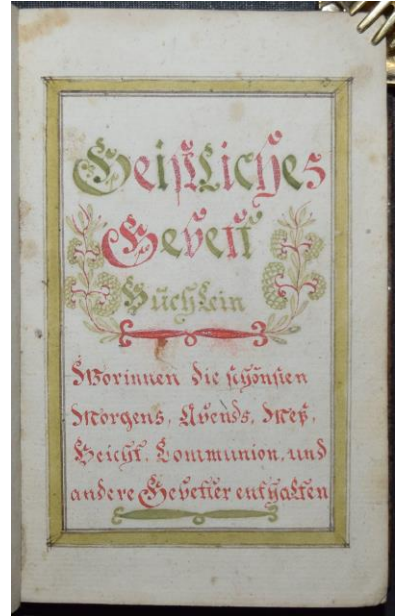 Geistliches
Gebett
Büchlein
Worinnen die schönsten
Morgens, Abends, Meß,
Beicht, Communion, und
andere Gebetter enthalten